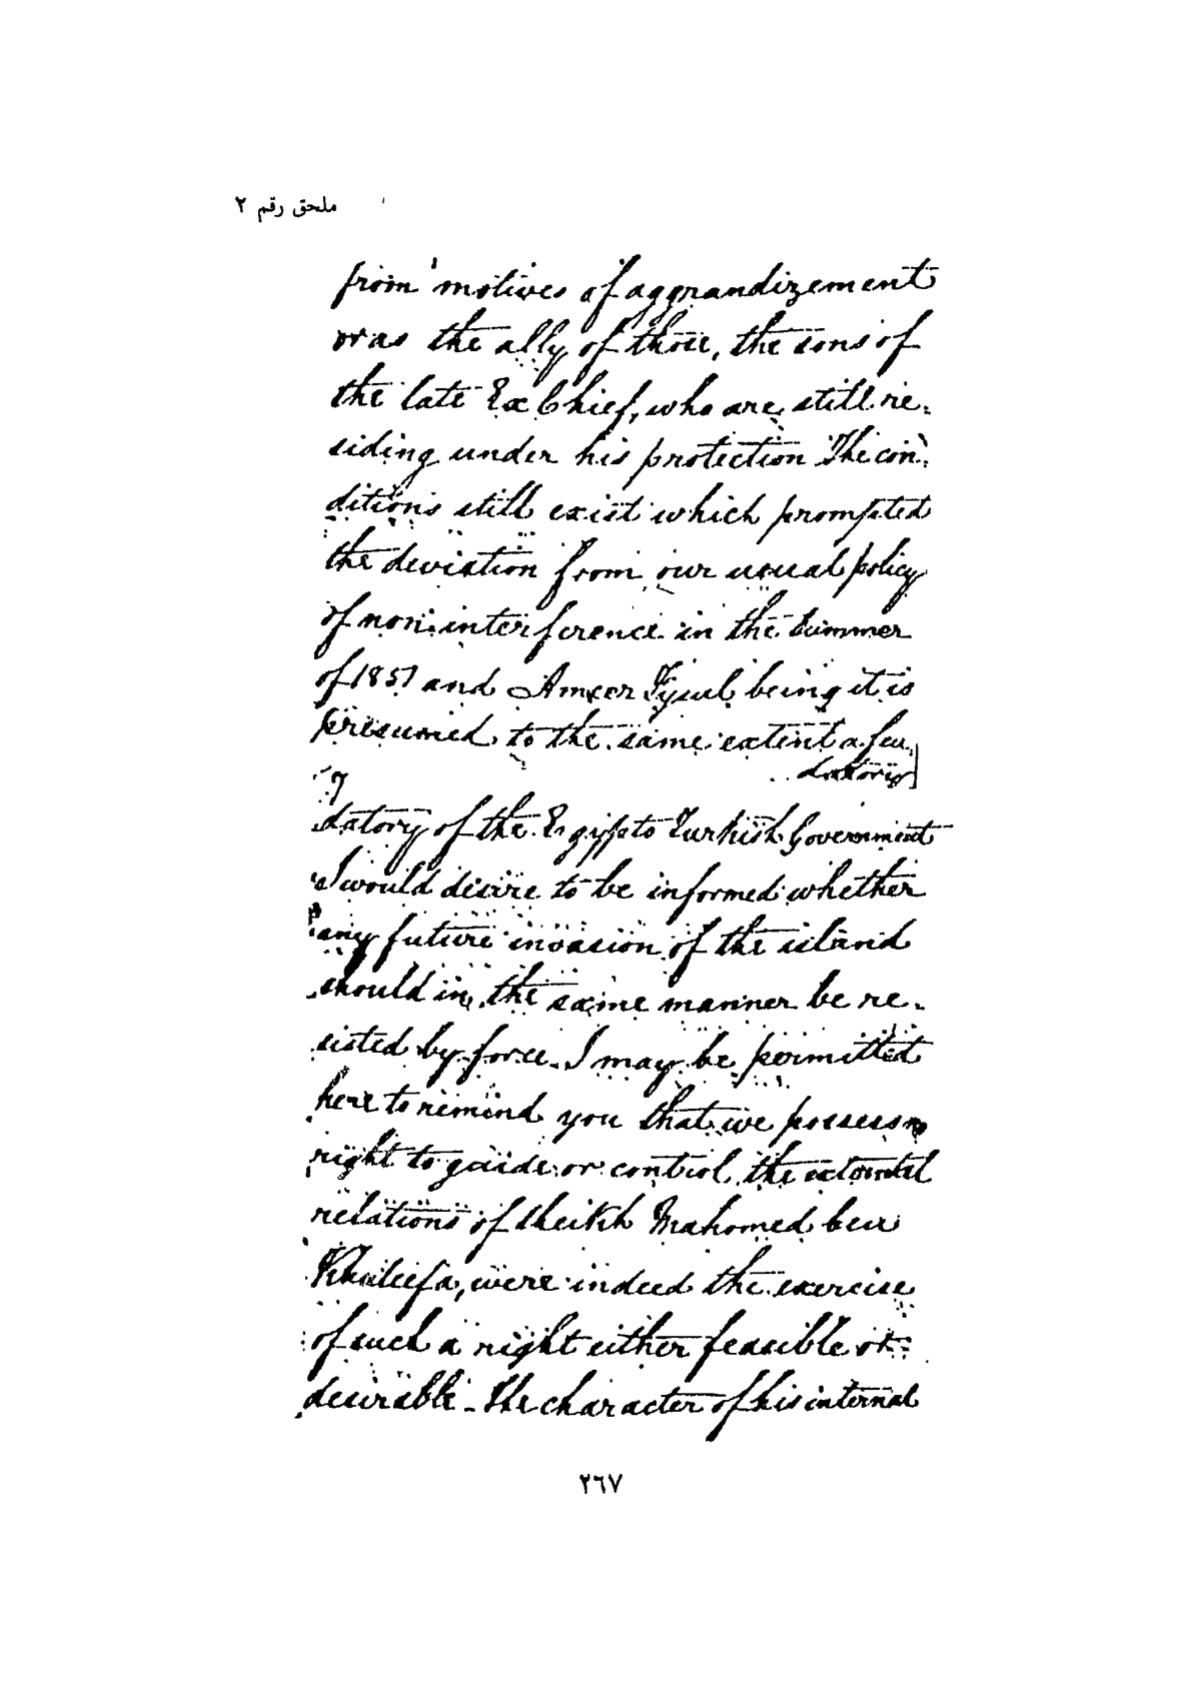 ملحق رقم ٢
from motives of aggrandizement
or as the ally of those, the sons of
the late Ex Chief, who are still re-
siding under his protection The con-
ditions still exist which prompted
the deviation from our usual policy
of non-interference in the Summer
of 1851 and Ameer Fysul being it is
presumed to the same extent a feu-
datory
7
datory of the Egypto Turkish Government
I would desire to be informed whether
any future invasion of the island
should in the same manner be re-
sisted by force. I may be permitted
here to remind you that we possess no
right to guide or control the external
relations of Sheikh Mahomed ben
Khaleefa, were indeed the exercise
of such a right either feasible or
desirable - The character of his internal
٢٦٧